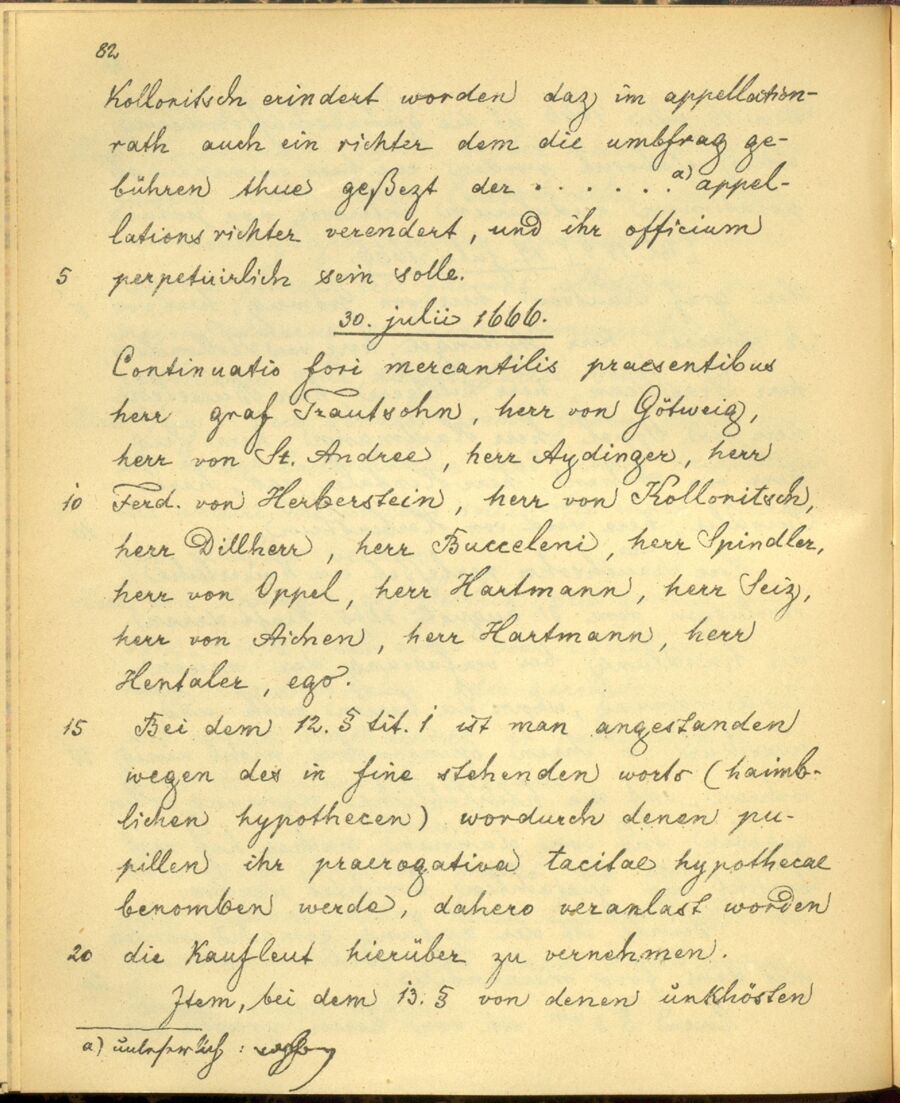 82
Kollonitsch erindert worden daz im appellation-
rath auch ein richter dem die umbfrag ge-
bühren thue geßezt der . . . . . . a) appel-
lations richter verendert, und ihr officium
5 perpetuirlich sein solle.
30. julii 1666.
Continuatio fori mercantilis praesentibus
herr graf Trautsohn, herr von Götweig,
herr von St. Andree, herr Aydinger, herr
10 Ferd. von Herberstein, herr von Kollonitsch,
herr Dillherr, herr Bucceleni, herr Spindler,
herr von Oppel, herr Hartmann, herr Seiz,
herr von Aichen, herr Hartmann, herr
Hentaler, ego.
15 Bei dem 12. § tit. 1 ist man angestanden
wegen des in fine stehenden worts (haimb-
lichen hypothecen) wordurch denen pu-
pillen ihr praerogativa tacitae hypothecae
benomben werde, dahero veranlast worden
20 die Kaufleut hierüber zu vernehmen.
Item, bei dem 13. § von denen unkhösten
a) unleserlich :